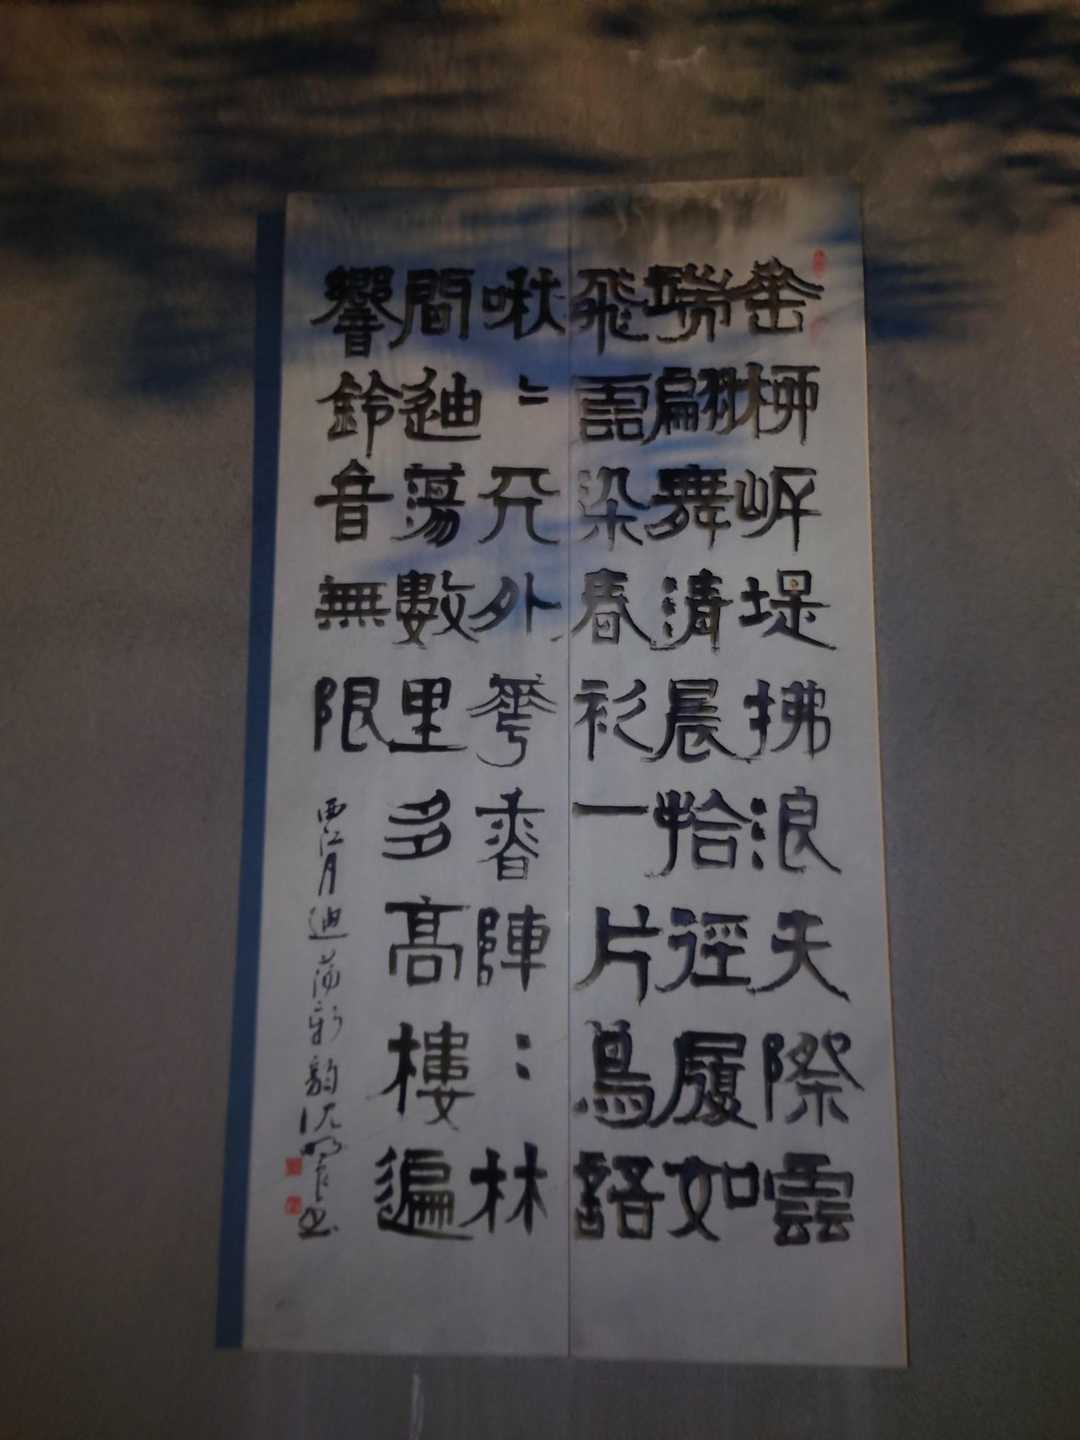 垂柳岍堤拂浪天際雲
端翩舞清晨拾徑履如
飛露染春衫一片鳥語
啾〻天外花香陣〻林
間迪蕩數里多高樓遍
響鈴音無限
西江月迪蕩新韵